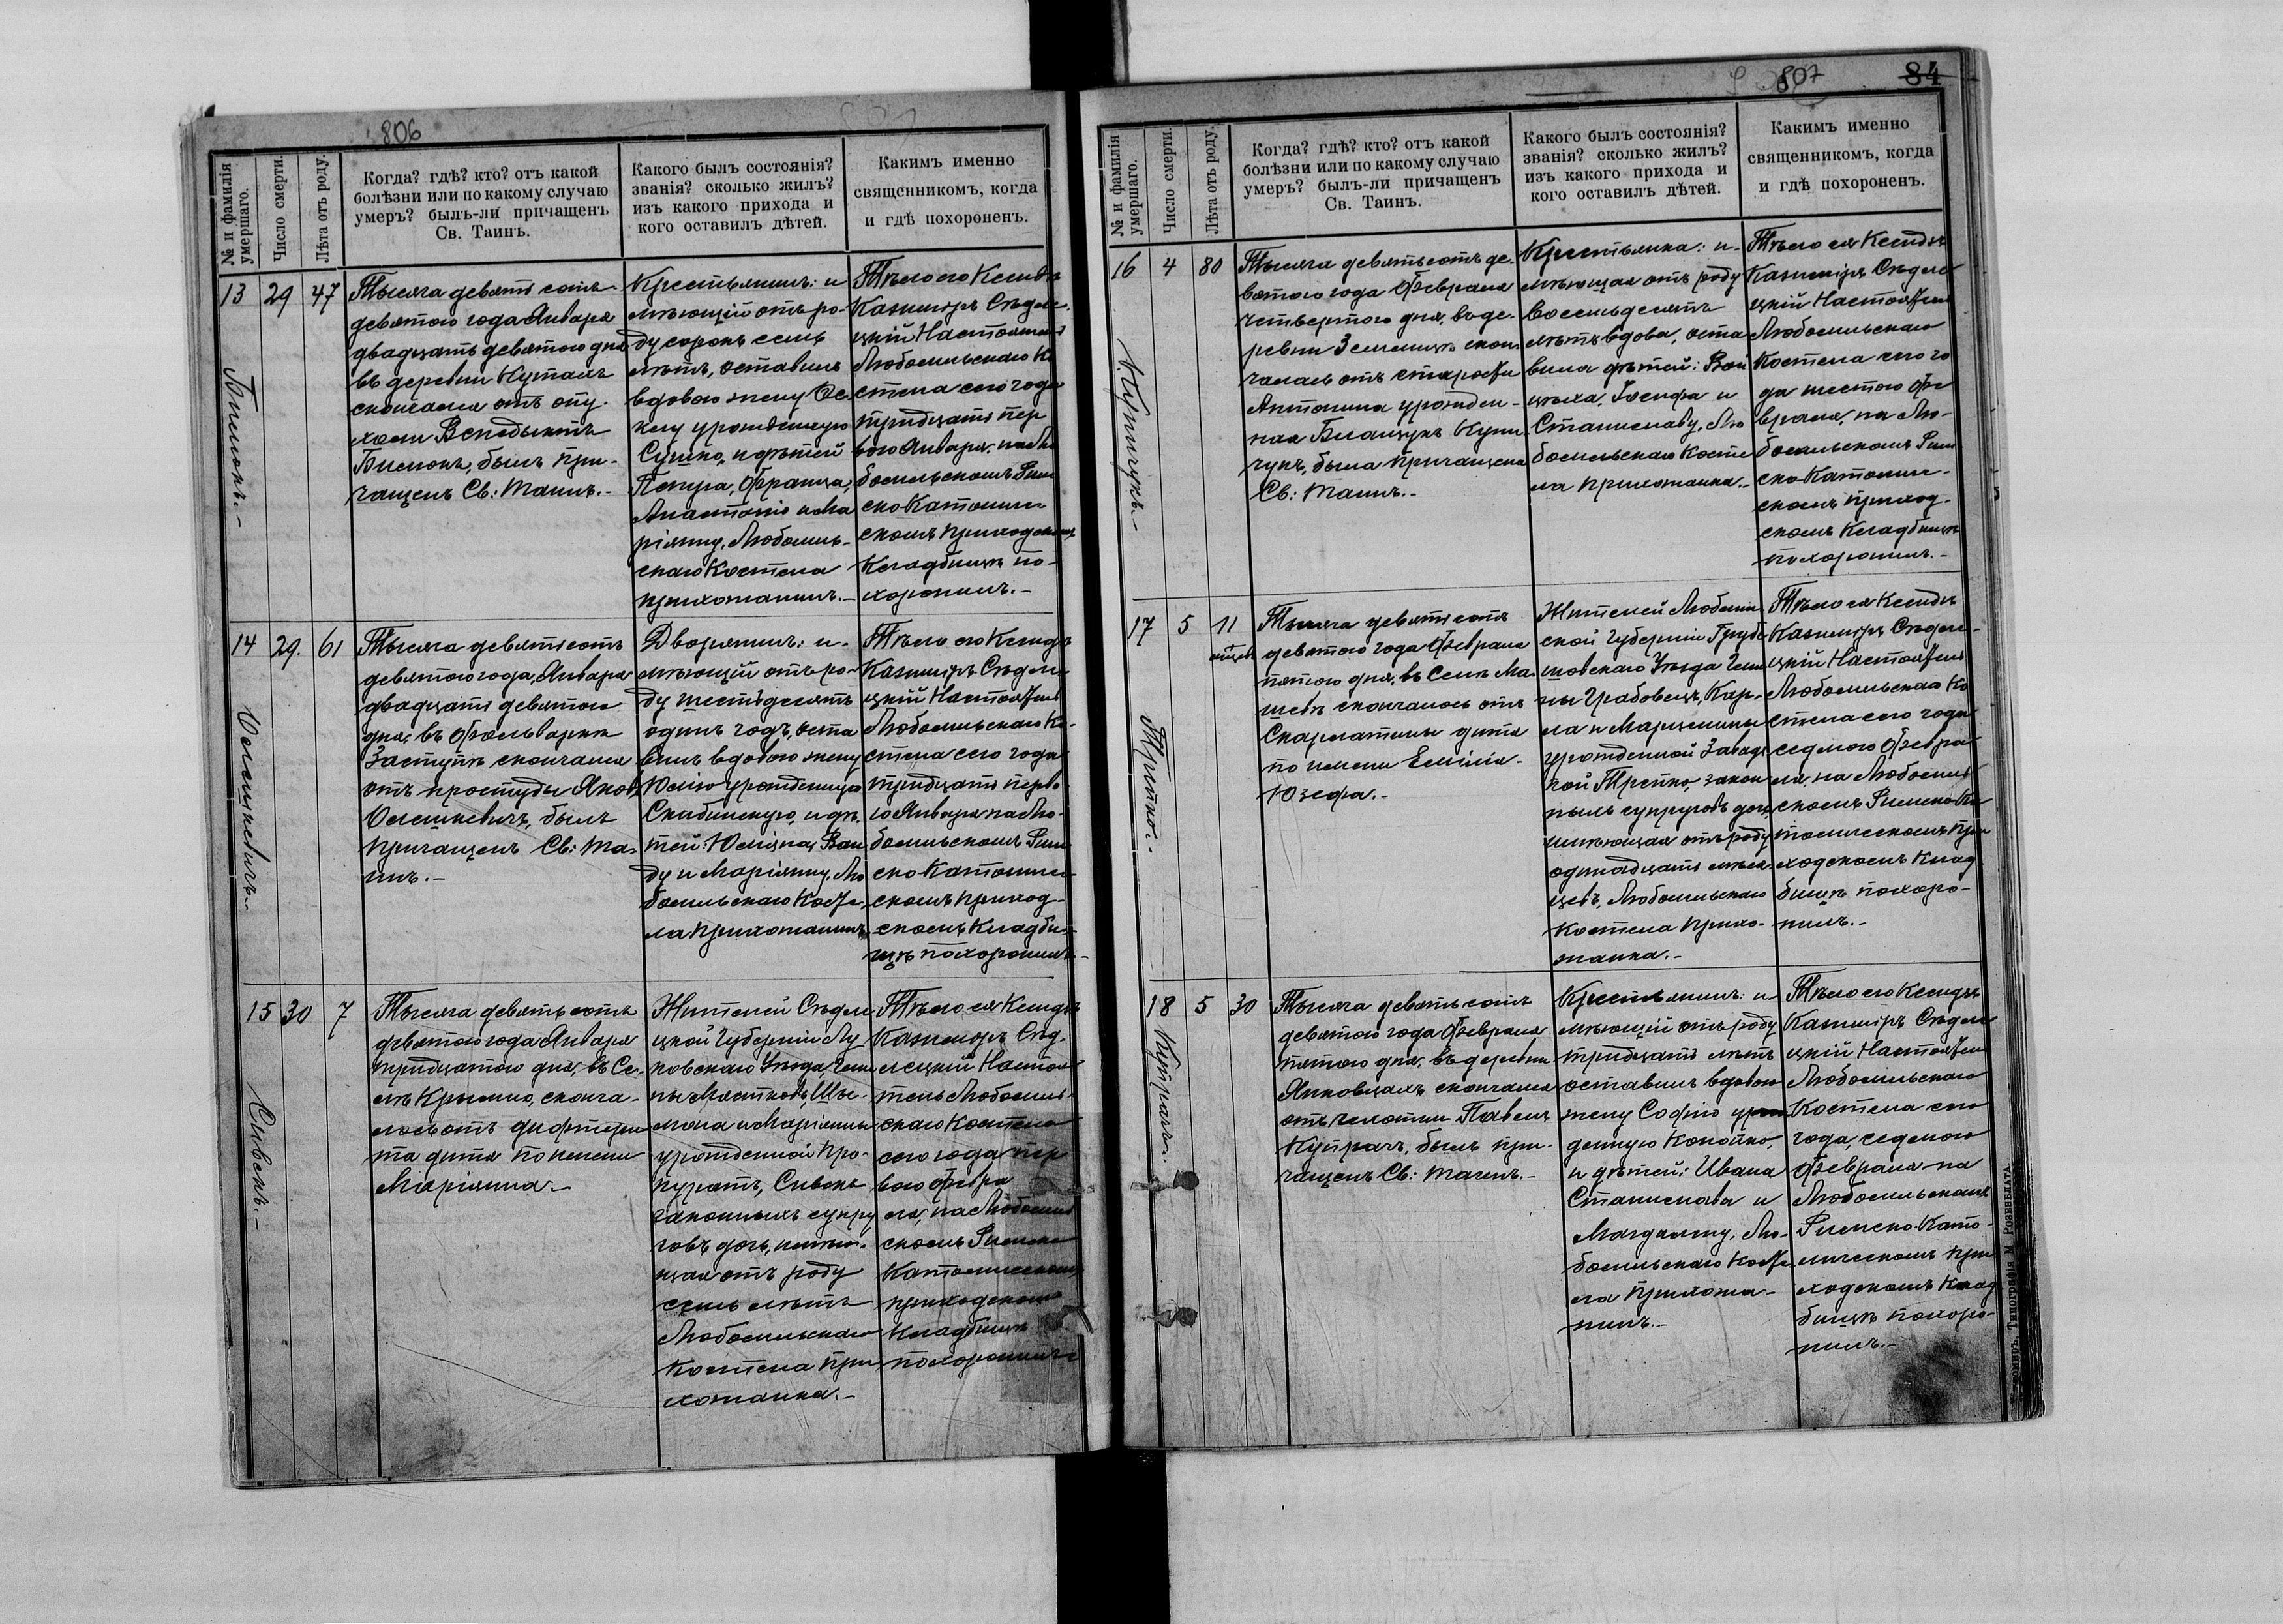 806
№ и фамилія умершаго.
Число смерти.
Лѣта отъ роду.
Когда? гдѣ? кто? отъ какой
болѣзни или по какому случаю
умеръ? былъ-ли причащенъ
Св. Таинъ.
Какого былъ состоянія?
званія? сколько жилъ?
изъ какого прихода и
кого оставилъ дѣтей.
Какимъ именно
священникомъ, когда
и гдѣ похороненъ.
13
29
47
Тысяча девятьсотъ
девятого года Января
двадцать девятого дня
въ деревни Кутахъ
скончался отъ опу-
холи Венедыктъ
Бисюкъ, былъ при-
чащенъ Св: Таинъ.-
Крестьянинъ: и
мѣющій отъ ро-
ду сорокъ семь
лѣтъ, оставилъ
вдовою жену
урожденную
Сушко, и дѣтей
Петра, Франца,
Анастасію и Ма
ріянну, Любомль-
скаго Костела
прихожанинъ.-
Тѣло его Ксендзъ
Казиміръ Сѣдле-
цкій Настоятель
Любомльскаго Ко
стела сего года
тридцать пер
вого Января, на Лю
бомльскомъ Рим
ско Католиче
скомъ приходскомъ
Кладбищѣ по-
хоронилъ.-
14
29.
61
Олешкевичъ.-
Тысяча девятьсотъ
девятого года, Января
двадцать девятого
дня, въ Фольваркѣ
Заступѣ скончался
отъ простуды Яковъ
Олешкевичъ, былъ
причащенъ Св: Та-
инъ.-
Дворянинъ: и-
мѣющій отъ ро-
ду шестьдесятъ
одинъ годъ, оста
вилъ вдовою жену
Юлію урожденную
Скабинскую, и дѣ-
тей: Юліяна, Ван
ду и Маріянну, Лю
бомльскаго Косте-
ла прихожанинъ
Тѣло его Ксендзъ
Казиміръ Сѣдле-
цкій Настоятель
Любомльскаго Ко-
стела сего года
тридцать перво
го Января на Лю-
бомльскомъ Рим
ско Католиче-
скомъ приход-
скомъ Кладби-
щѣ похоронилъ.-
15
30
7
Сивекъ.-
Тысяча девятьсотъ
девятого года Января
тридцатого дня, въ Се-
лѣ Крымно, сконча-
лось отъ дифтери
та дитя по имени
Маріянна.-
Жителей Сѣдле
цкой Губерніи Лу
ковскаго Уѣзда, Гми
ны Мястковъ, Шы-
мона и Маріянны
урожденной Про-
куратъ, Сивекъ
законныхъ супру
говъ дочь, имѣю-
щая отъ роду
семь лѣтъ
Любомльскаго
Костела при
хожанка.-
Тѣло ея Ксендзъ
Казиміръ Сѣд-
лецкій Настоя
тель Любомль-
скаго Костела
сего года пер
вого Февра
ля, на Любомль
скомъ Римско
Католическомъ
приходскомъ
Кладбищѣ
похоронилъ
807
84
№ и фамилія умершаго.
Число смерти.
Лѣта отъ роду.
Когда? гдѣ? кто? отъ какой
болѣзни или по какому случаю
умеръ? былъ-ли причащенъ
Св. Таинъ.
Какого былъ состоянія?
званія? сколько жилъ?
изъ какого прихода и
кого оставилъ дѣтей.
Какимъ именно
священникомъ, когда
и гдѣ похороненъ.
16
4
80
Тысяча девятьсотъ де-
вятого года Февраля
четвертого дня, въ де-
ревни Земмицѣ скон-
чалась отъ старости
Антонина урожден-
ная Билащукъ Купи
чукъ, была причащена
Св: Таинъ.-
Крестьянка: и-
мѣющая отъ роду
восемьдесятъ
лѣтъ вдова, оста
вила дѣтей: Вой
цѣха, Іосифа и
Станиславу, Лю
бомльскаго Косте
ла прихожанка.-
Тѣло ея Ксендзъ
Казиміръ Сѣдле
цкій Настоятель
Любомльскаго
Костела сего го
да шестого Фе
враля, на Лю-
бомльскомъ Рим
ско-Католиче-
скомъ приход-
скомъ Кладбищѣ
похоронилъ.-
17
5
11
Третко.-
Тысяча девятьсотъ
девятого года Февраля
пятого дня, въ Селѣ Ма-
шевѣ скончалось отъ
Скарлатины дитя
по имени Емілія-
Юзефа.-
Жителей Люблин
ской Губерніи Грубе
шовскаго Уѣзда Гми
ны Грабовецъ, Кар-
ла и Марцелины
урожденной Завадз
кой Третко, закон
ныхъ супруговъ дочь,
имѣющая отъ роду
одинадцать мѣся
цевъ, Любомльскаго
Костела прихо-
жанка.-
Тѣло ея Ксендзъ
Казиміръ Сѣдле-
цкій Настоятель
Любомльскаго Ко
стела сего года
седмого Февра
ля, на Любомль
скомъ Римско-Ка
толическомъ При
ходскомъ Клад
бищѣ похоро-
нилъ.-
18
5
30
Купрачъ.-
Тысяча девятьсотъ
девятого года Февраля
пятого дня, въ деревни
Янковцахъ скончался
отъ чахотки Павелъ
Купрачъ, былъ при-
чащенъ Св: Таинъ.-
Крестьянинъ: и-
мѣющій отъ роду
тридцать лѣтъ
оставилъ вдовою
жену Софію урож
денную Конопко,
и дѣтей: Ивана
Станислава и
Магдалину, Лю-
бомльскаго Косте
ла прихожа-
нинъ.-
Тѣло его Ксендзъ
Казиміръ Сѣдле
цкій Настоятель
Любомльскаго
Костела сего
года, седмого
Февраля на
Любомльскомъ
Римско-Като-
лическомъ при
ходскомъ Клад
бищѣ похоро-
нилъ.-
Типографія М. Розенблата